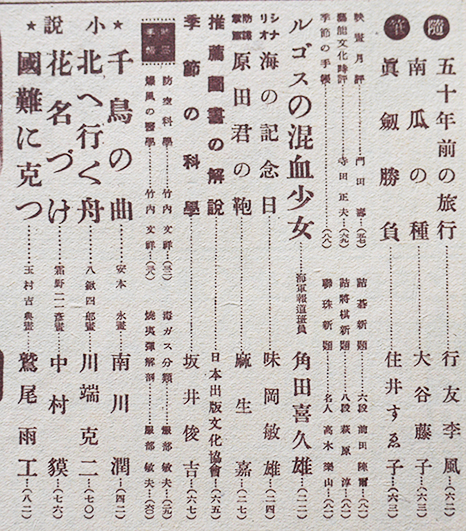 隨筆
五十年前の旅行……行友李風…(六二)
南瓜の種……大谷藤子…(六三)
眞劍勝負……住井すゑ子…(六三)
映畫月評……門田 (五七)
藝能文化時評……寺田正夫…(六九)
季節の手帳……(八八)
詰碁新題……六段 前田陳爾…(八一)
詰將棋新題……八段 萩原 淳…(八一)
聯珠新題……名人 高木樂山…(八一)
ルゴスの混血少女……海軍報道班員 角田喜久雄…(二二)
シナリオ 海の記念日……味岡敏雄…(二四)
防諜掌篇 原田君の鞄……麻生 嘉…(二七)
推薦圖書の解說……日本出版文化協會…(六五)
季節の科學……坂井俊吉…(六七)
防空科學……竹内文祥…(三八)
爆風の醫學……竹内文祥…(三九)
毒ガス分類……服部敏夫…(五九)
燒夷彈解剖……服部敏夫…(六一)
小說
★千鳥の曲……安本 永畫 南川 潤…(四二)
北へ行く舟……八鍬四郎畫 川端克二…(七〇)
花名づけ……霜野二一彥畫 中村 獏…(七六)
★國難に克つ……玉村吉典畫 鷲尾雨工…(八二)